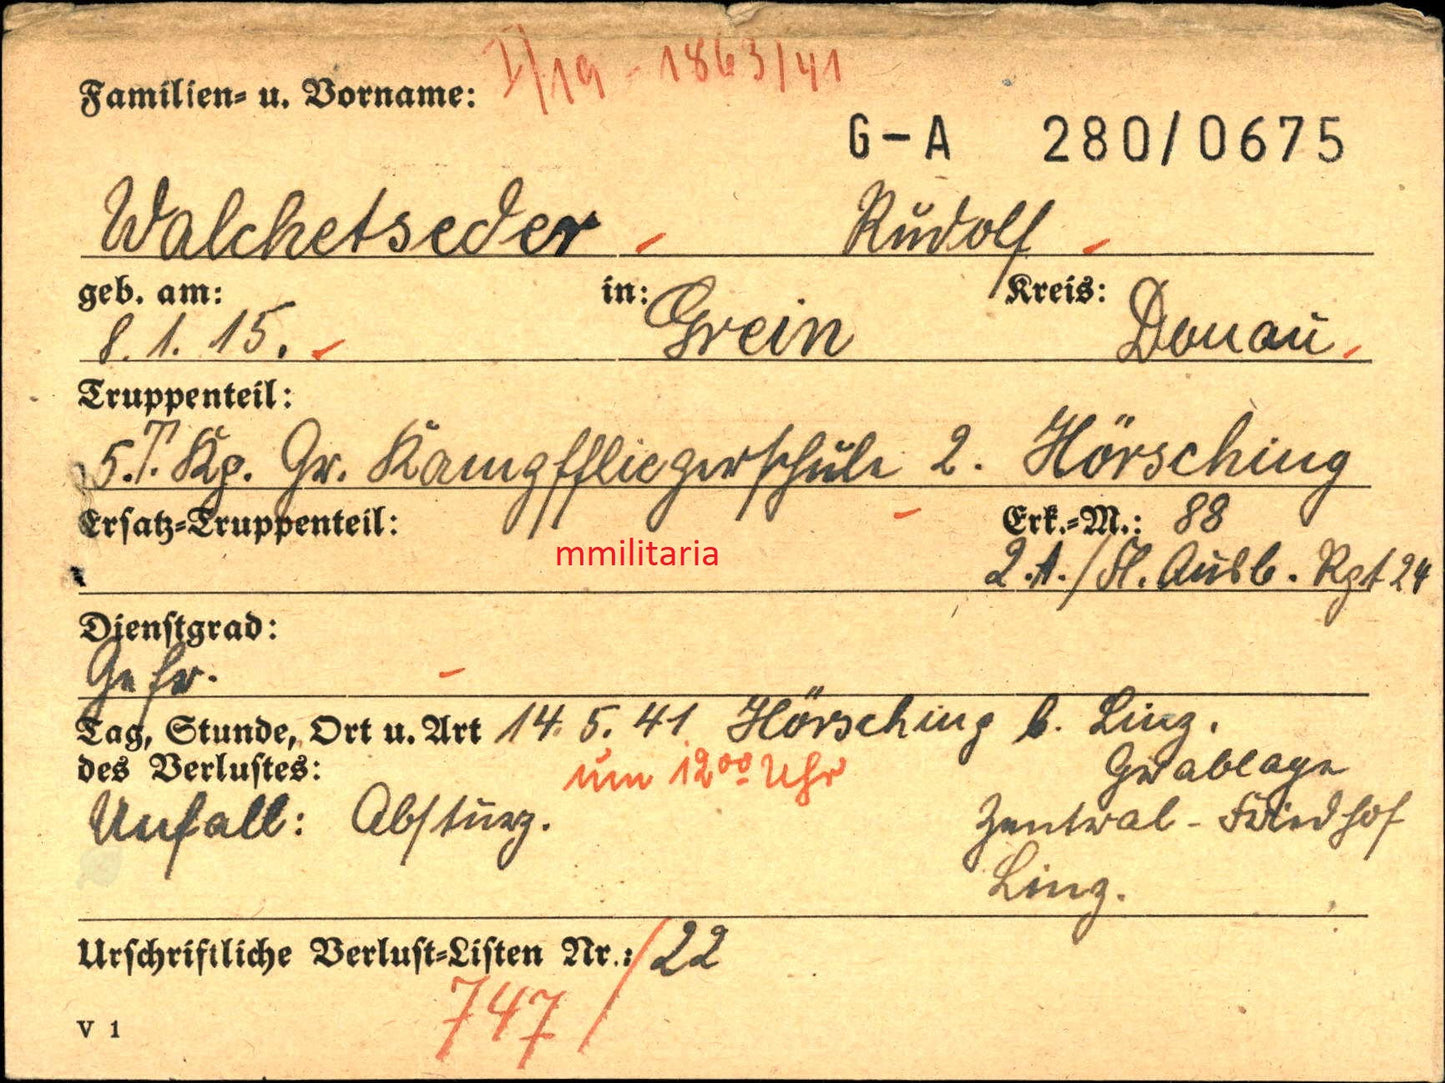 I/19 - 1863/41
Familien- u. Vorname:
G-A 280/0675
Walchetseder Rudolf
geb. am: in: Kreis:
8.1.15. Grein Donau
Truppenteil:
5.T. Kp. Gr. Kampffliegerschule 2. Hörsching
Ersatz-Truppenteil: Erk.-M.: 88
mmilitaria
2.A./Fl. Ausb. Rgt 24
Dienstgrad:
Gefr.
Tag, Stunde, Ort u. Art 14.5.41 Hörsching b. Linz.
des Verlustes: um 12⁰⁰ Uhr Grablage
Unfall: Absturz. Zentral-Friedhof
Linz.
Urschriftliche Verlust-Listen Nr.: /22
747
V 1